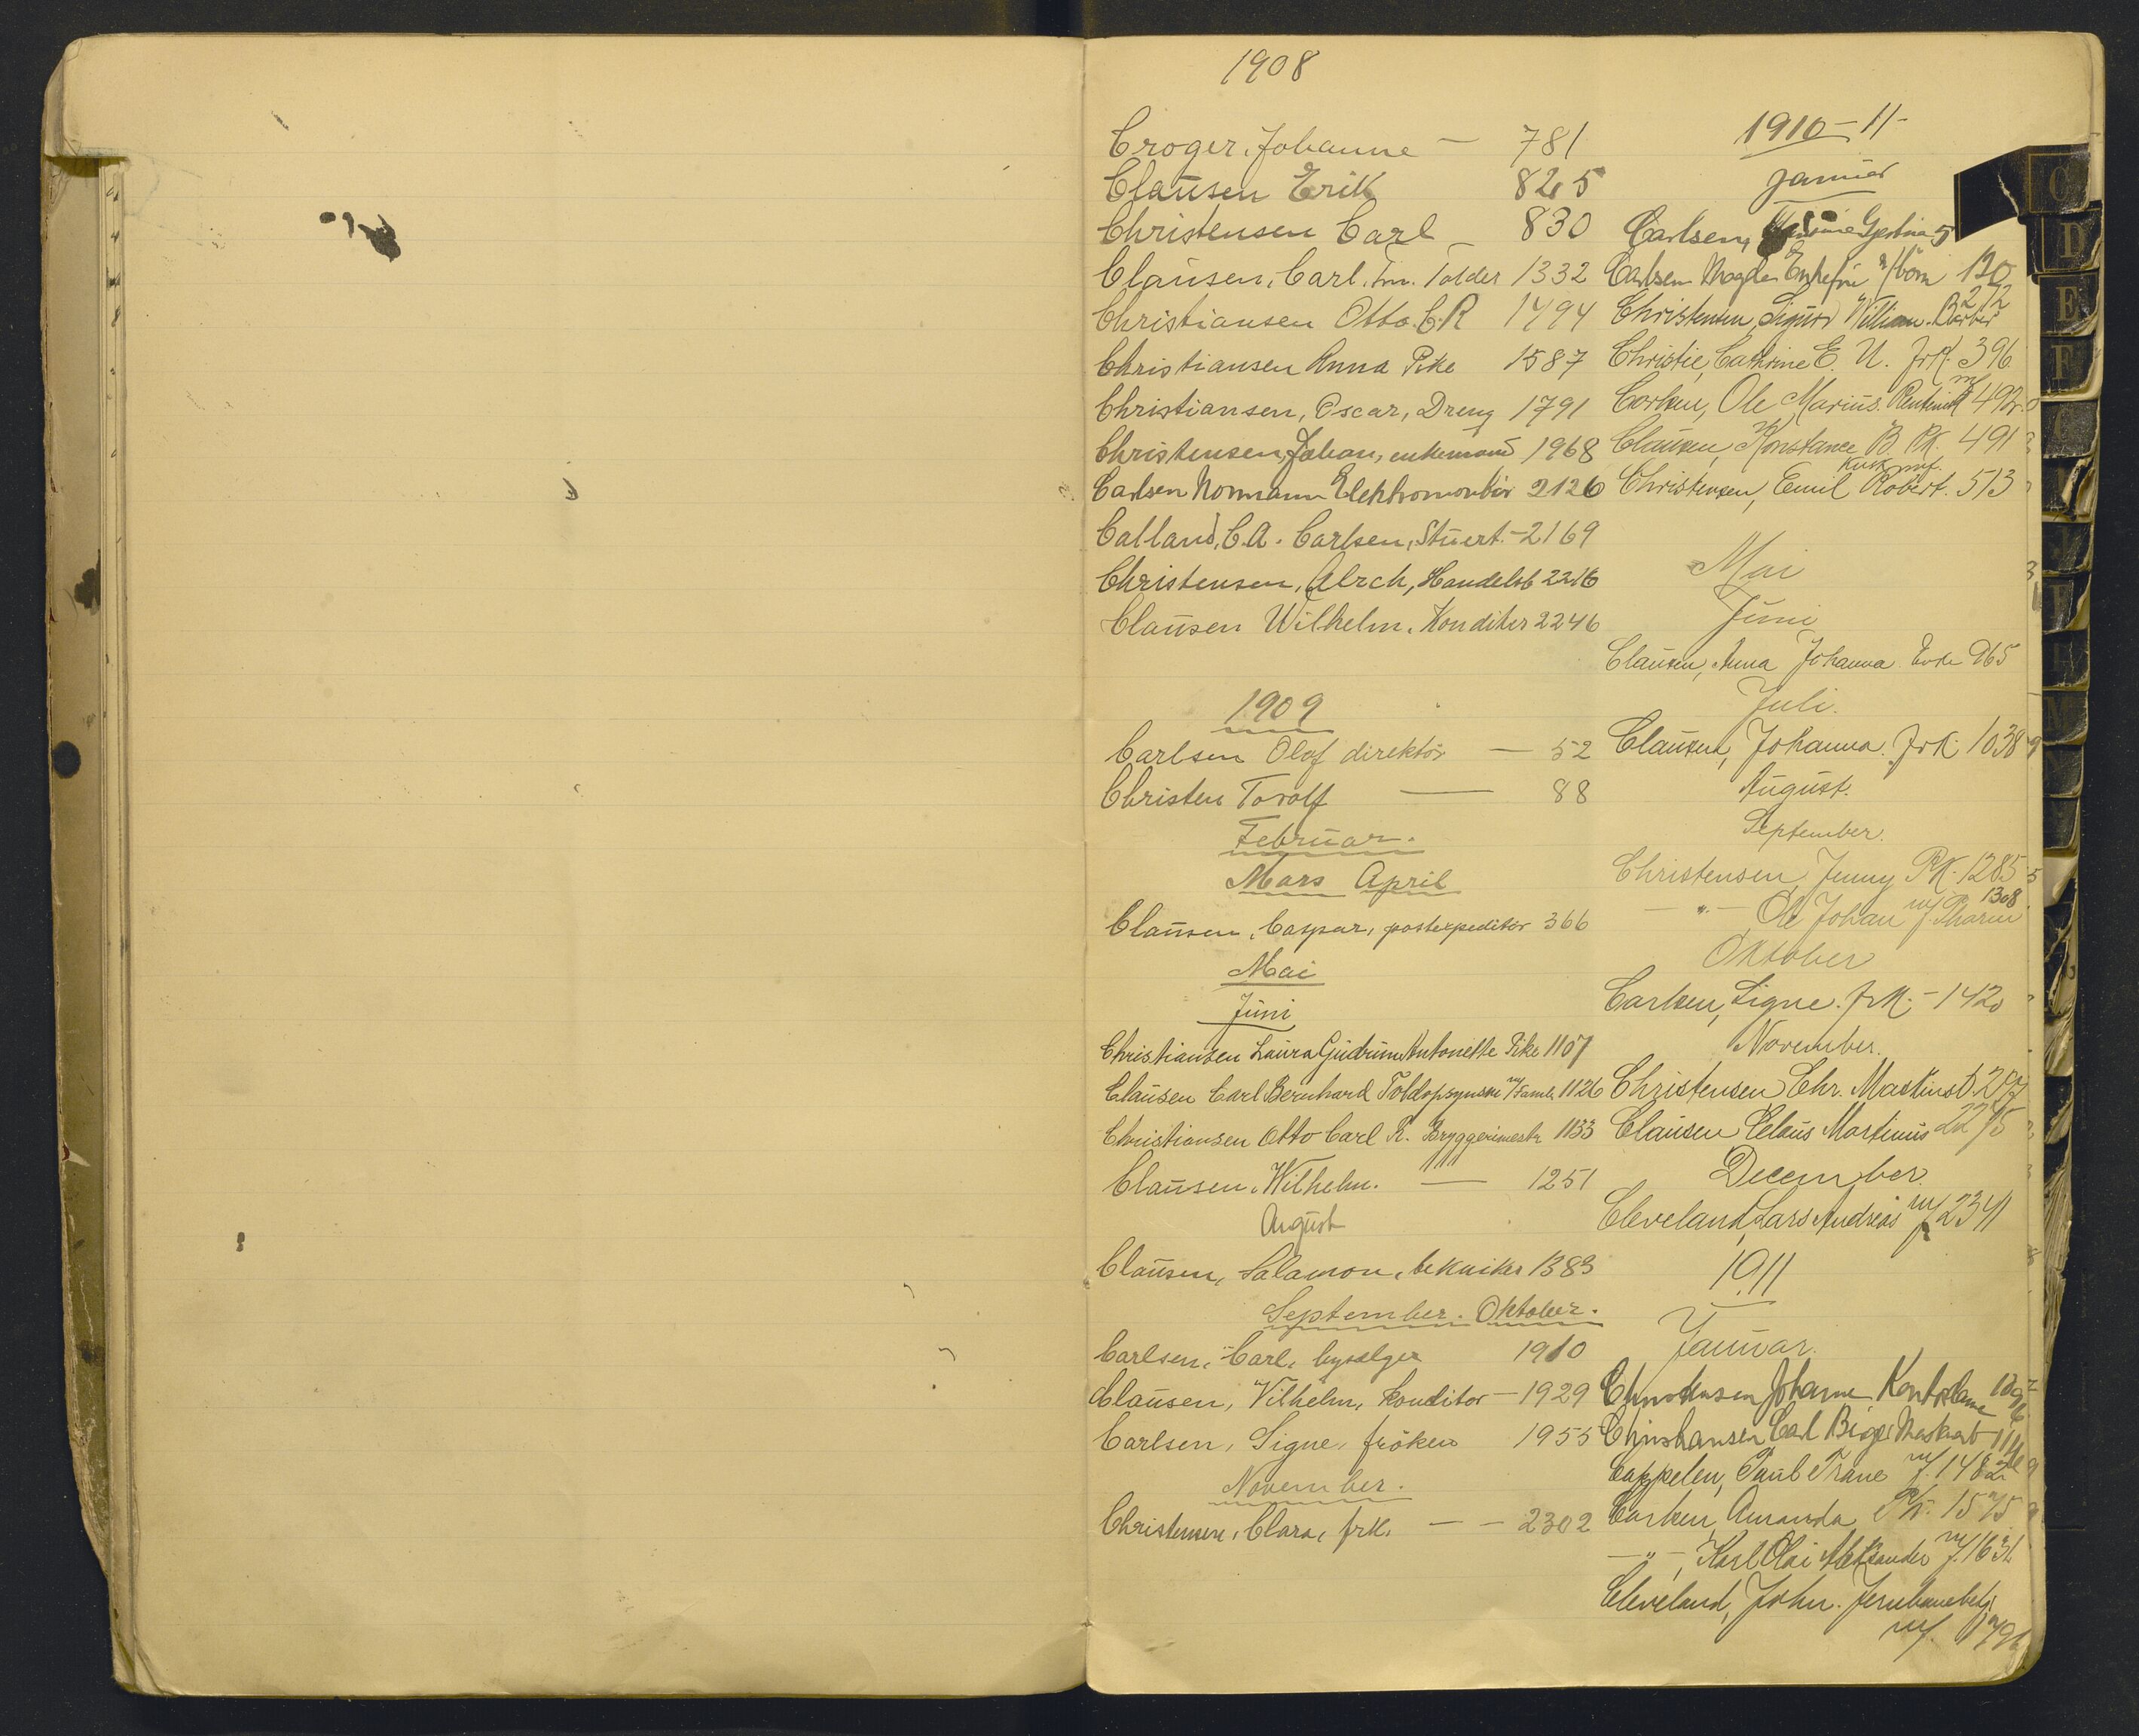 1908
Croger, Johanne — 781
Clausen Erik 825
Christensen Carl — 830
Clausen, Carl, fm. Tolder 1332
Christiansen Otto C.R 1494
Christiansen Anna Pike 1587
Christiansen, Oscar, Dreng 1791
Christensen, Johan, enkemand 1968
Carlsen Normann Elektromontör 2126
Calland, C.A. Carlsen, Stuert. - 2169
Christensen, Alrch, Handelsb 2216
Clausen Wilhelm, Konditor 2246
1909
Carlsen Olaf direktör — 52
Christen Torolf — 88
Februar.
Mars April
Clausen, Caspar, postexpeditör 366
Mai
Juni
Christiansen Laura Gudrun Antonette Pike 1107
Clausen Carl Bernhard Toldopsynsm m/Famb 1126
Christiansen Otto Carl R. Bryggerimestr 1133
Clausen, Wilhelm. — 1251
August
Clausen, Salamon, tekniker 1383
September. Oktober.
Carlsen, Carl, bysælger 1910
Clausen, Vilhelm, konditor — 1929
Carlsen, Signe, fröken 1955
November.
Christensen, Clara, frk. — — 2302
1910-11-
Januar
Carlsen, Gjertine 5
Carlsen Magda Enkefru m/börn 120
Christensen, Sigurd William. Barber 272
Christie, Cathrine E. U. frk. 396
Corken, Ole Marius. m/
Clausen, Konstance B. Pk. 491
Christensen, Emil Robert. Kusk m/f. 513
Mai
Juni
Clausen, Anna Johanna Enke 965
Juli.
Clausen, Johanna. frk. 1038
August.
September.
Christensen, Jenny PK. 1285
— " — Ole Johan m/f. 1308
Oktober
Carlsen, Signe. frk. - 1420
November.
Christensen, Chr. Maskinst.
Clausen Claus Martinus 2275
December.
Cleveland, Lars Andreas m/f 2341
1911
Januar.
Christensen Johanne Kontordame
Christiansen Carl Birger
Cappelen, Paul Trane m/f. 1482
Carlsen, Amanda Pk. 1575
— " —, Karl Olai Aleksander m/f.
Cleveland, John. Jernbanebetj.
m/f.